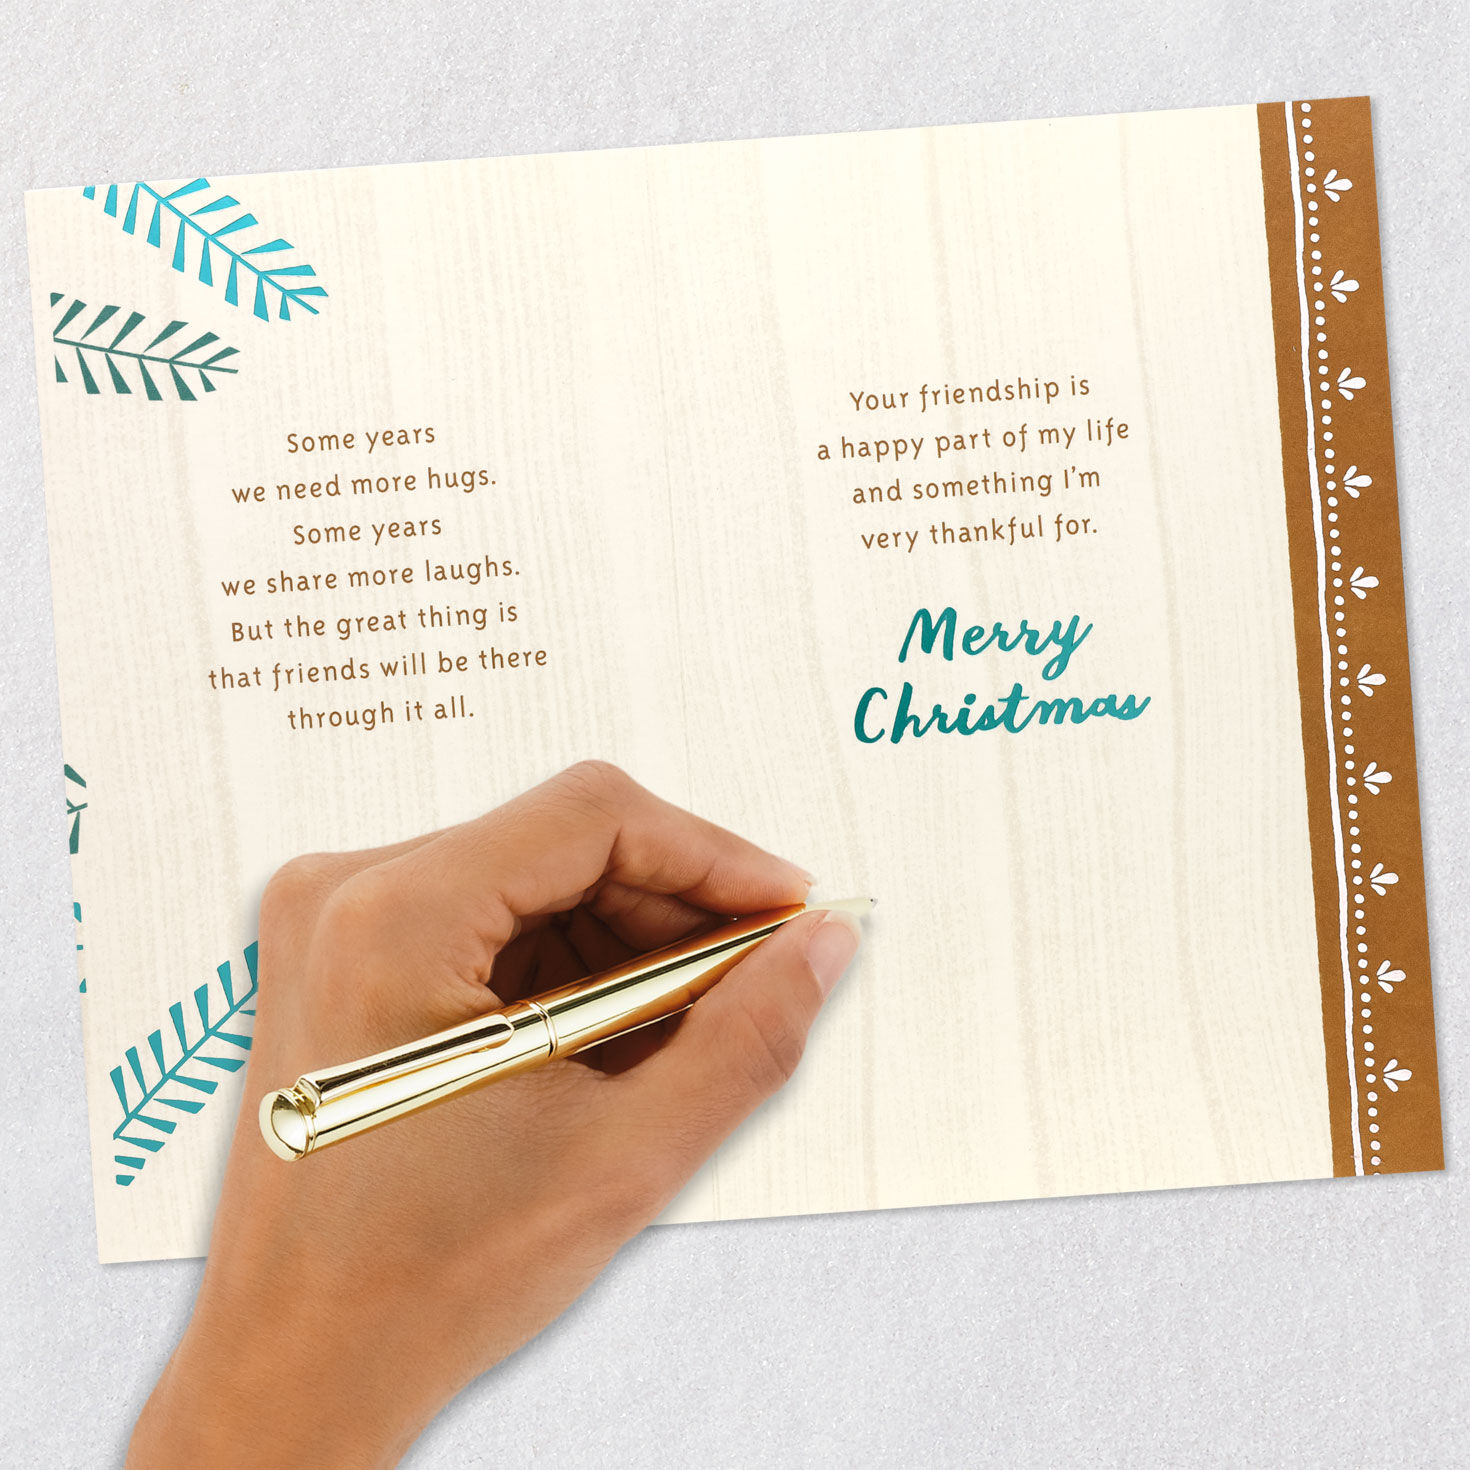 Some years
we need more hugs.
Some years
we share more laughs.
But the great thing is
that friends will be there
through it all.
Your friendship is
a happy part of my life
and something I'm
very thankful for.
Merry
Christmas